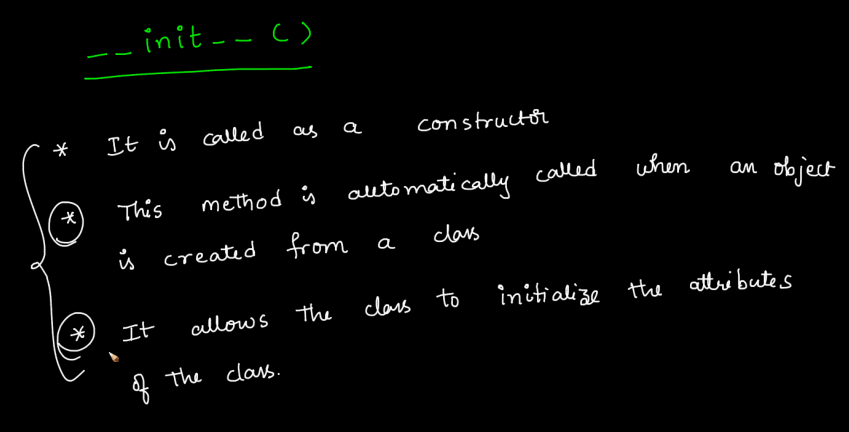 __init__()
* It is called as a constructor
* This method is automatically called when an object
is created from a class
* It allows the class to initialize the attributes
of the class.